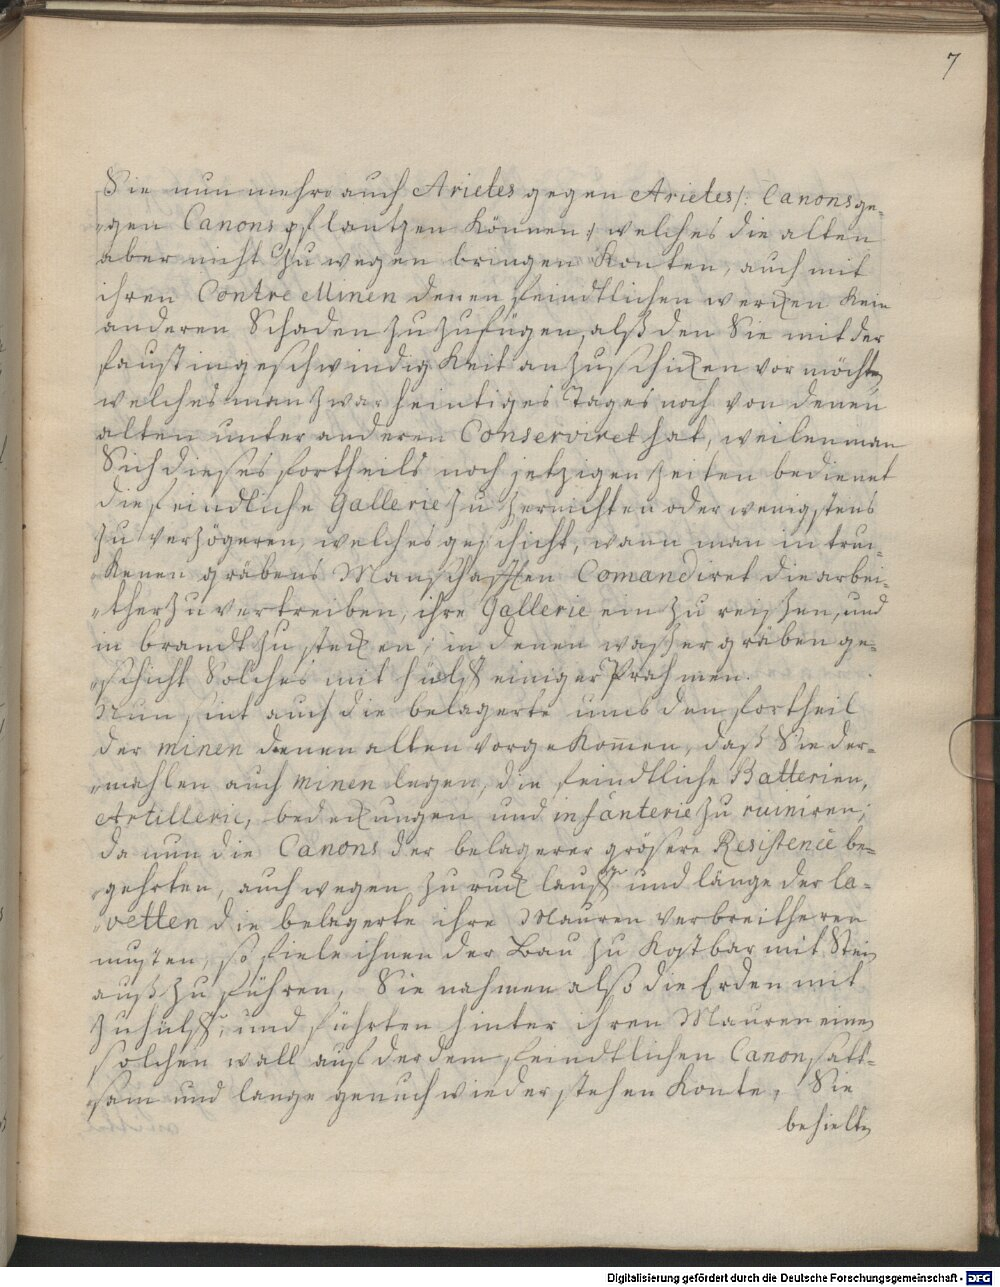 7
Sie nun mehro auch Arietes gegen Arietes /: Canons ge-
„gen Canons pflantzen Können :/ welches die alten
aber nicht Zu wegen bringen Konten, auch mit
ihren Contre Minen denen feindtlichen wercken Kein
anderen Schaden zu zufügen, alß den Sie mit der
faust in geschwindig Keit an zu schicken vermöchten
welches man zwar heintiges Tages noch von denen
alten unter anderen Conserviret hat, weilen man
Sich dieses fortheils noch jetzigen Zeiten bedienet
die feindliche Gallerie Zu zernichten oder wenigstens
Zu verzögeren, welches geschicht, wann man in tru-
„Kenen gräbens Manschafften Comandiret die arbei-
„ther Zu vertreiben, ihre Gallerie ein zu reißen, und
in brandt zu stecken, in denen waßer gräben ge-
„schicht Solches mit hülff einiger Prahmen.
Nun sint auch die belagerte umb den fortheil
der minen denen alten vorgekom̅en, daß Sie der-
„mahlen auch minen legen, die feindtliche Batterien,
Artillerie, bedeckungen und infanterie zu ruiniren;
da nun die Canons der belagerer größere Resistence be-
„gehrten, auch wegen Zu ruck lauff und länge der la-
„vetten die belagerte ihre Mauren verbreitheren
musten, so fiele ihnen der Bau zu Kostbar mit Stein
auß zu führen, Sie nahmen also die Erden mit
zu hülff, und führten hinter ihren Mauren einen
solchen wall auf der dem feindtlichen Canon satt-
„sam und lange genuch wieder stehen Konte, Sie
behielten
Digitalisierung gefördert durch die Deutsche Forschungsgemeinschaft - DFG